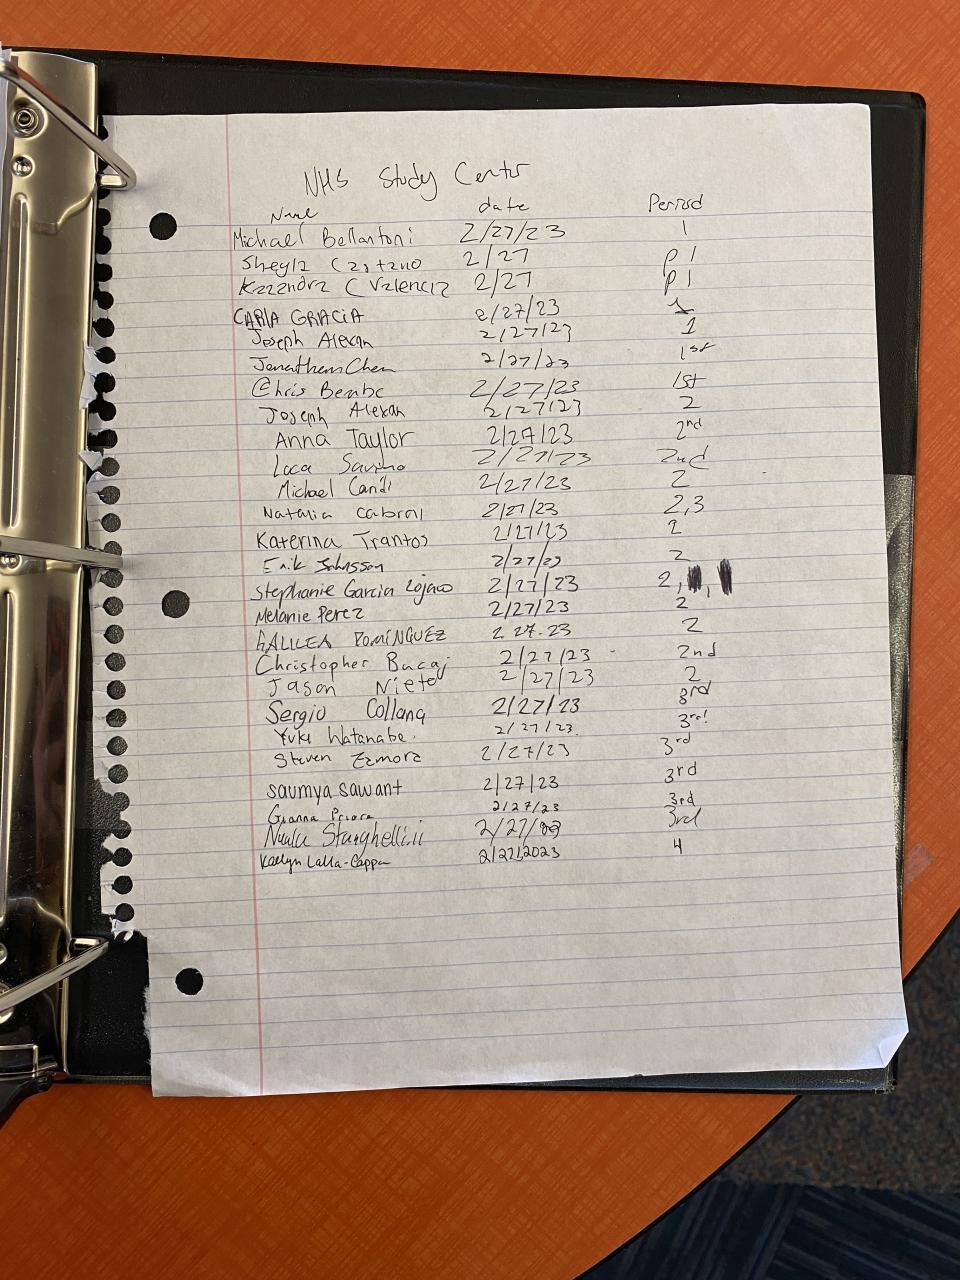 NHS Study Center
Name date Period
Michael Bellantoni 2/27/23 1
Sheyla Castano 2/27 P1
Kazandra C Valencia 2/27 P1
CARLA GRACIA 2/27/23 1
Joseph Alexan 2/27/23 1
Jonathan Chen 2/27/23 1st
Chris 2/27/23 1st
Joseph Alexan 2/27/23 2
Anna Taylor 2/27/23 2nd
Luca Savino 2/27/23 2nd
Michael Candi 2/27/23 2
Natalia Cabral 2/27/23 2,3
Katerina Trantos 2/27/23 2
Erik Johnsson 2/27/23 2
Stephanie Garcia 2/27/23 2,
Melanie Perez 2/27/23 2
GALILEA DOMINGUEZ 2 27.23 2
Christopher Bucaj 2/27/23 2nd
Jason Nieto 2/27/23 2
Sergio Collana 2/27/23 3rd
Yuki Watanabe 2/27/23 3rd
Steven Zamora 2/27/23 3rd
Saumya Sawant 2/27/23 3rd
Gianna 2/27/23 3rd
2/27/23 3rd
Kaelyn Lalla-Cappa 2/27/2023 4